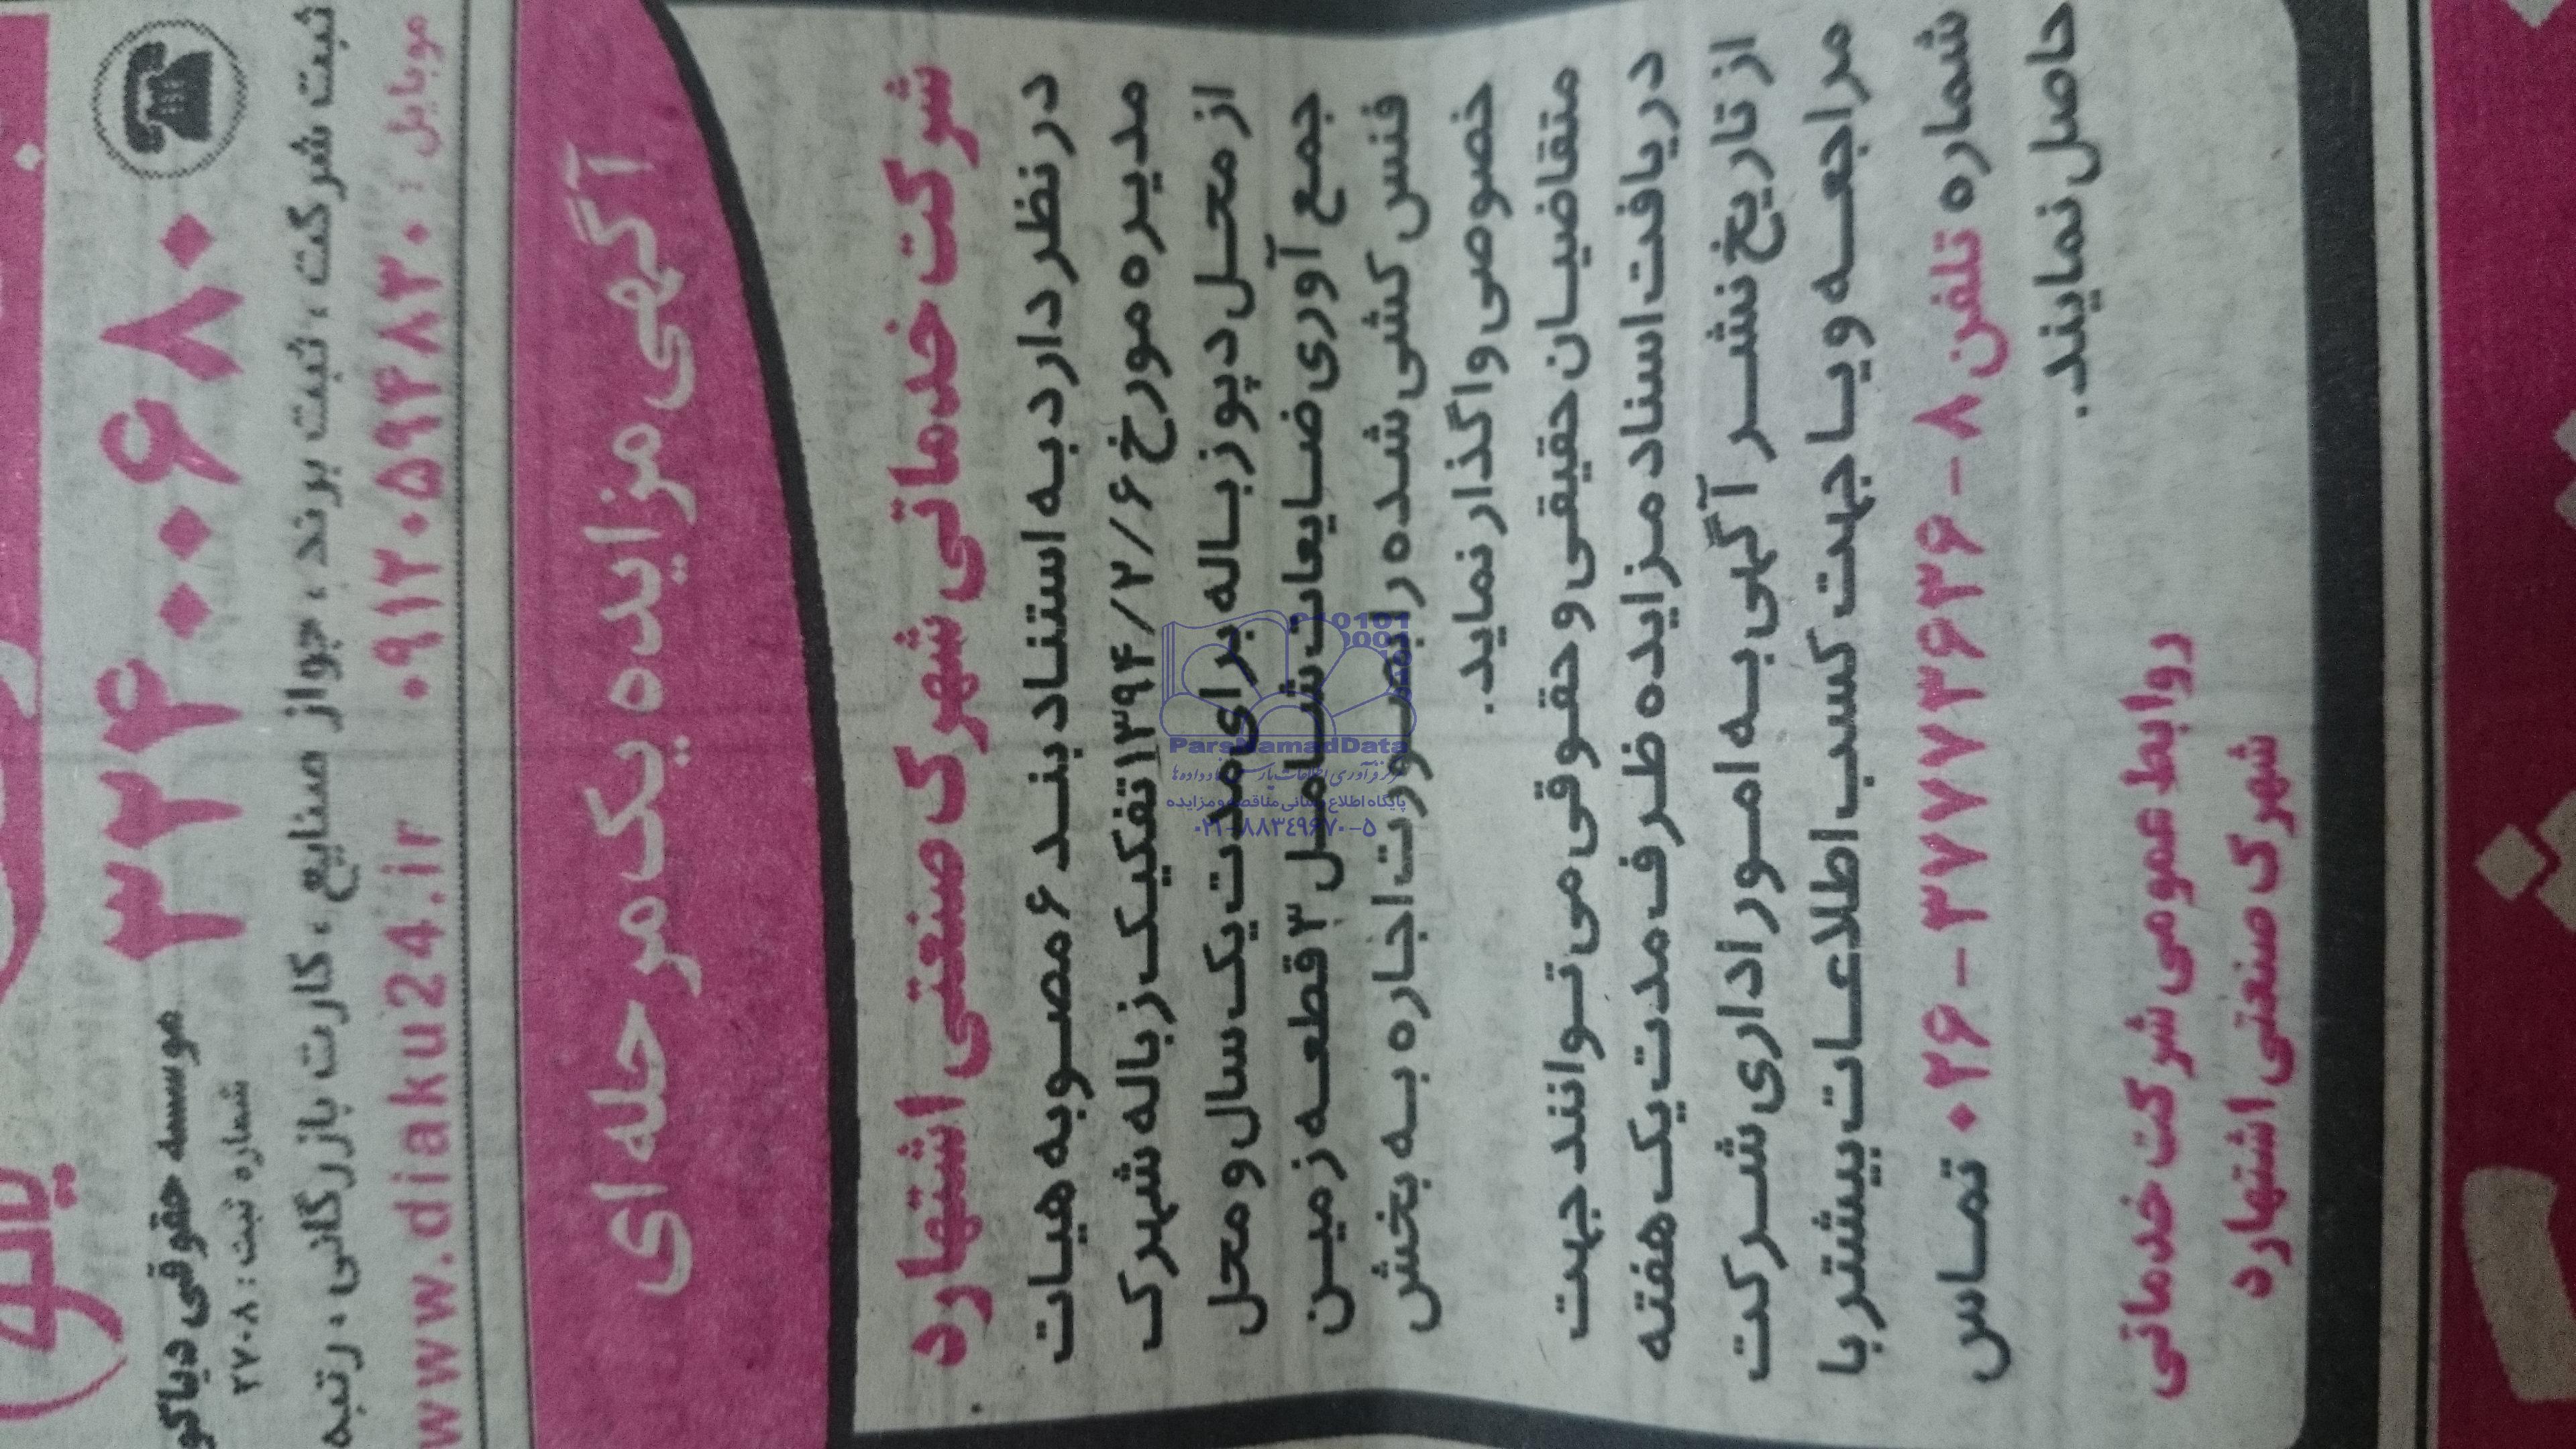 ۳۲۴۰۰۶۸۰
موسسه حقوقی دیاکو
شماره ثبت: ۲۷۰۸
ثبت شرکت، ثبت برند، جواز صنایع، کارت بازرگانی، رتبه
موبایل: ۰۹۱۲۰۵۹۴۸۳۰
www.diaku24.ir
آگهی مزایده یک مرحله ای
شرکت خدماتی شهرک صنعتی اشتهارد
در نظر دارد به استناد بند ۶ مصوبه هیات
مدیره مورخ ۱۳۹۴/۲/۶ تفکیک زباله شهرک
از محل دپو زباله برای مدت یک سال و محل
جمع آوری ضایعات شامل ۳ قطعه زمین
فنس کشی شده را بصورت اجاره به بخش
خصوصی واگذار نماید.
متقاضیان حقیقی و حقوقی می توانند جهت
دریافت اسناد مزایده ظرف مدت یک هفته
از تاریخ نشر آگهی به امور اداری شرکت
مراجعه و یا جهت کسب اطلاعات بیشتر با
شماره تلفن ۸-۳۷۷۷۳۶۳۶-۰۲۶ تماس
حاصل نمایند.
روابط عمومی شرکت خدماتی
شهرک صنعتی اشتهارد
ParsNamadData
مرکز فرآوری اطلاعات پارس نماد داده ها
پایگاه اطلاع رسانی مناقصه و مزایده
۰۲۱-۸۸۳۴۹۶۷۰-۵